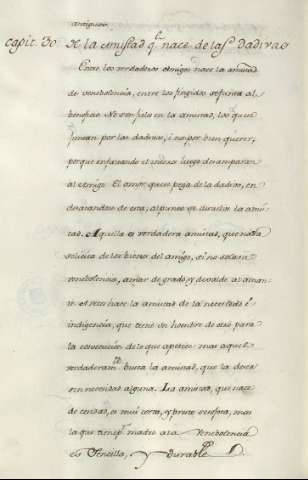 antiguos.
Capit. 30 De la amistad q̃ nace de las dadivas
Entre los verdaderos amigos nace la amistad
de venebolencia, entre los fingidos
beneficio. No son fieles en la amistad, los que se
juntan por las dadivas, i no por bien querer,
porque en faltando el luego desamparan
al Amigo. El amor que se pega de la dadiva, en
de esta, al punto se la amis-
tad. Aquella es verdadera amistad, que no
solicita de los bienes del amigo, si no sola
venebolencia, amar de grado, y de valde al aman-
te. A veces nace la amistad de la necesidad é
indigencia, que tiene un hombre de otro para
la de lo que apetece: mas aquel
verdaderam.te busca la amistad, que la desea
sin necesidad alguna. La amistad, que nace
de es mui corta, y mas
la que tiene p.r madre a la Venebolencia
es Sencilla, y durable